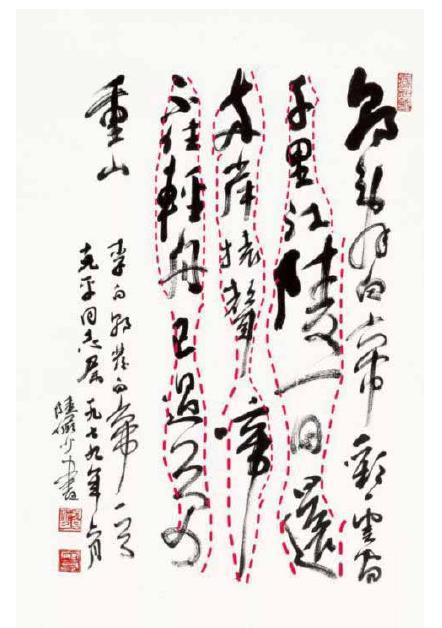 朝辭白帝彩雲間
千里江陵一日還
兩岸猿聲啼
不住輕舟已過萬
重山
李白朝發白帝一首
克平同志屬 一九七九年月
陸儼少書